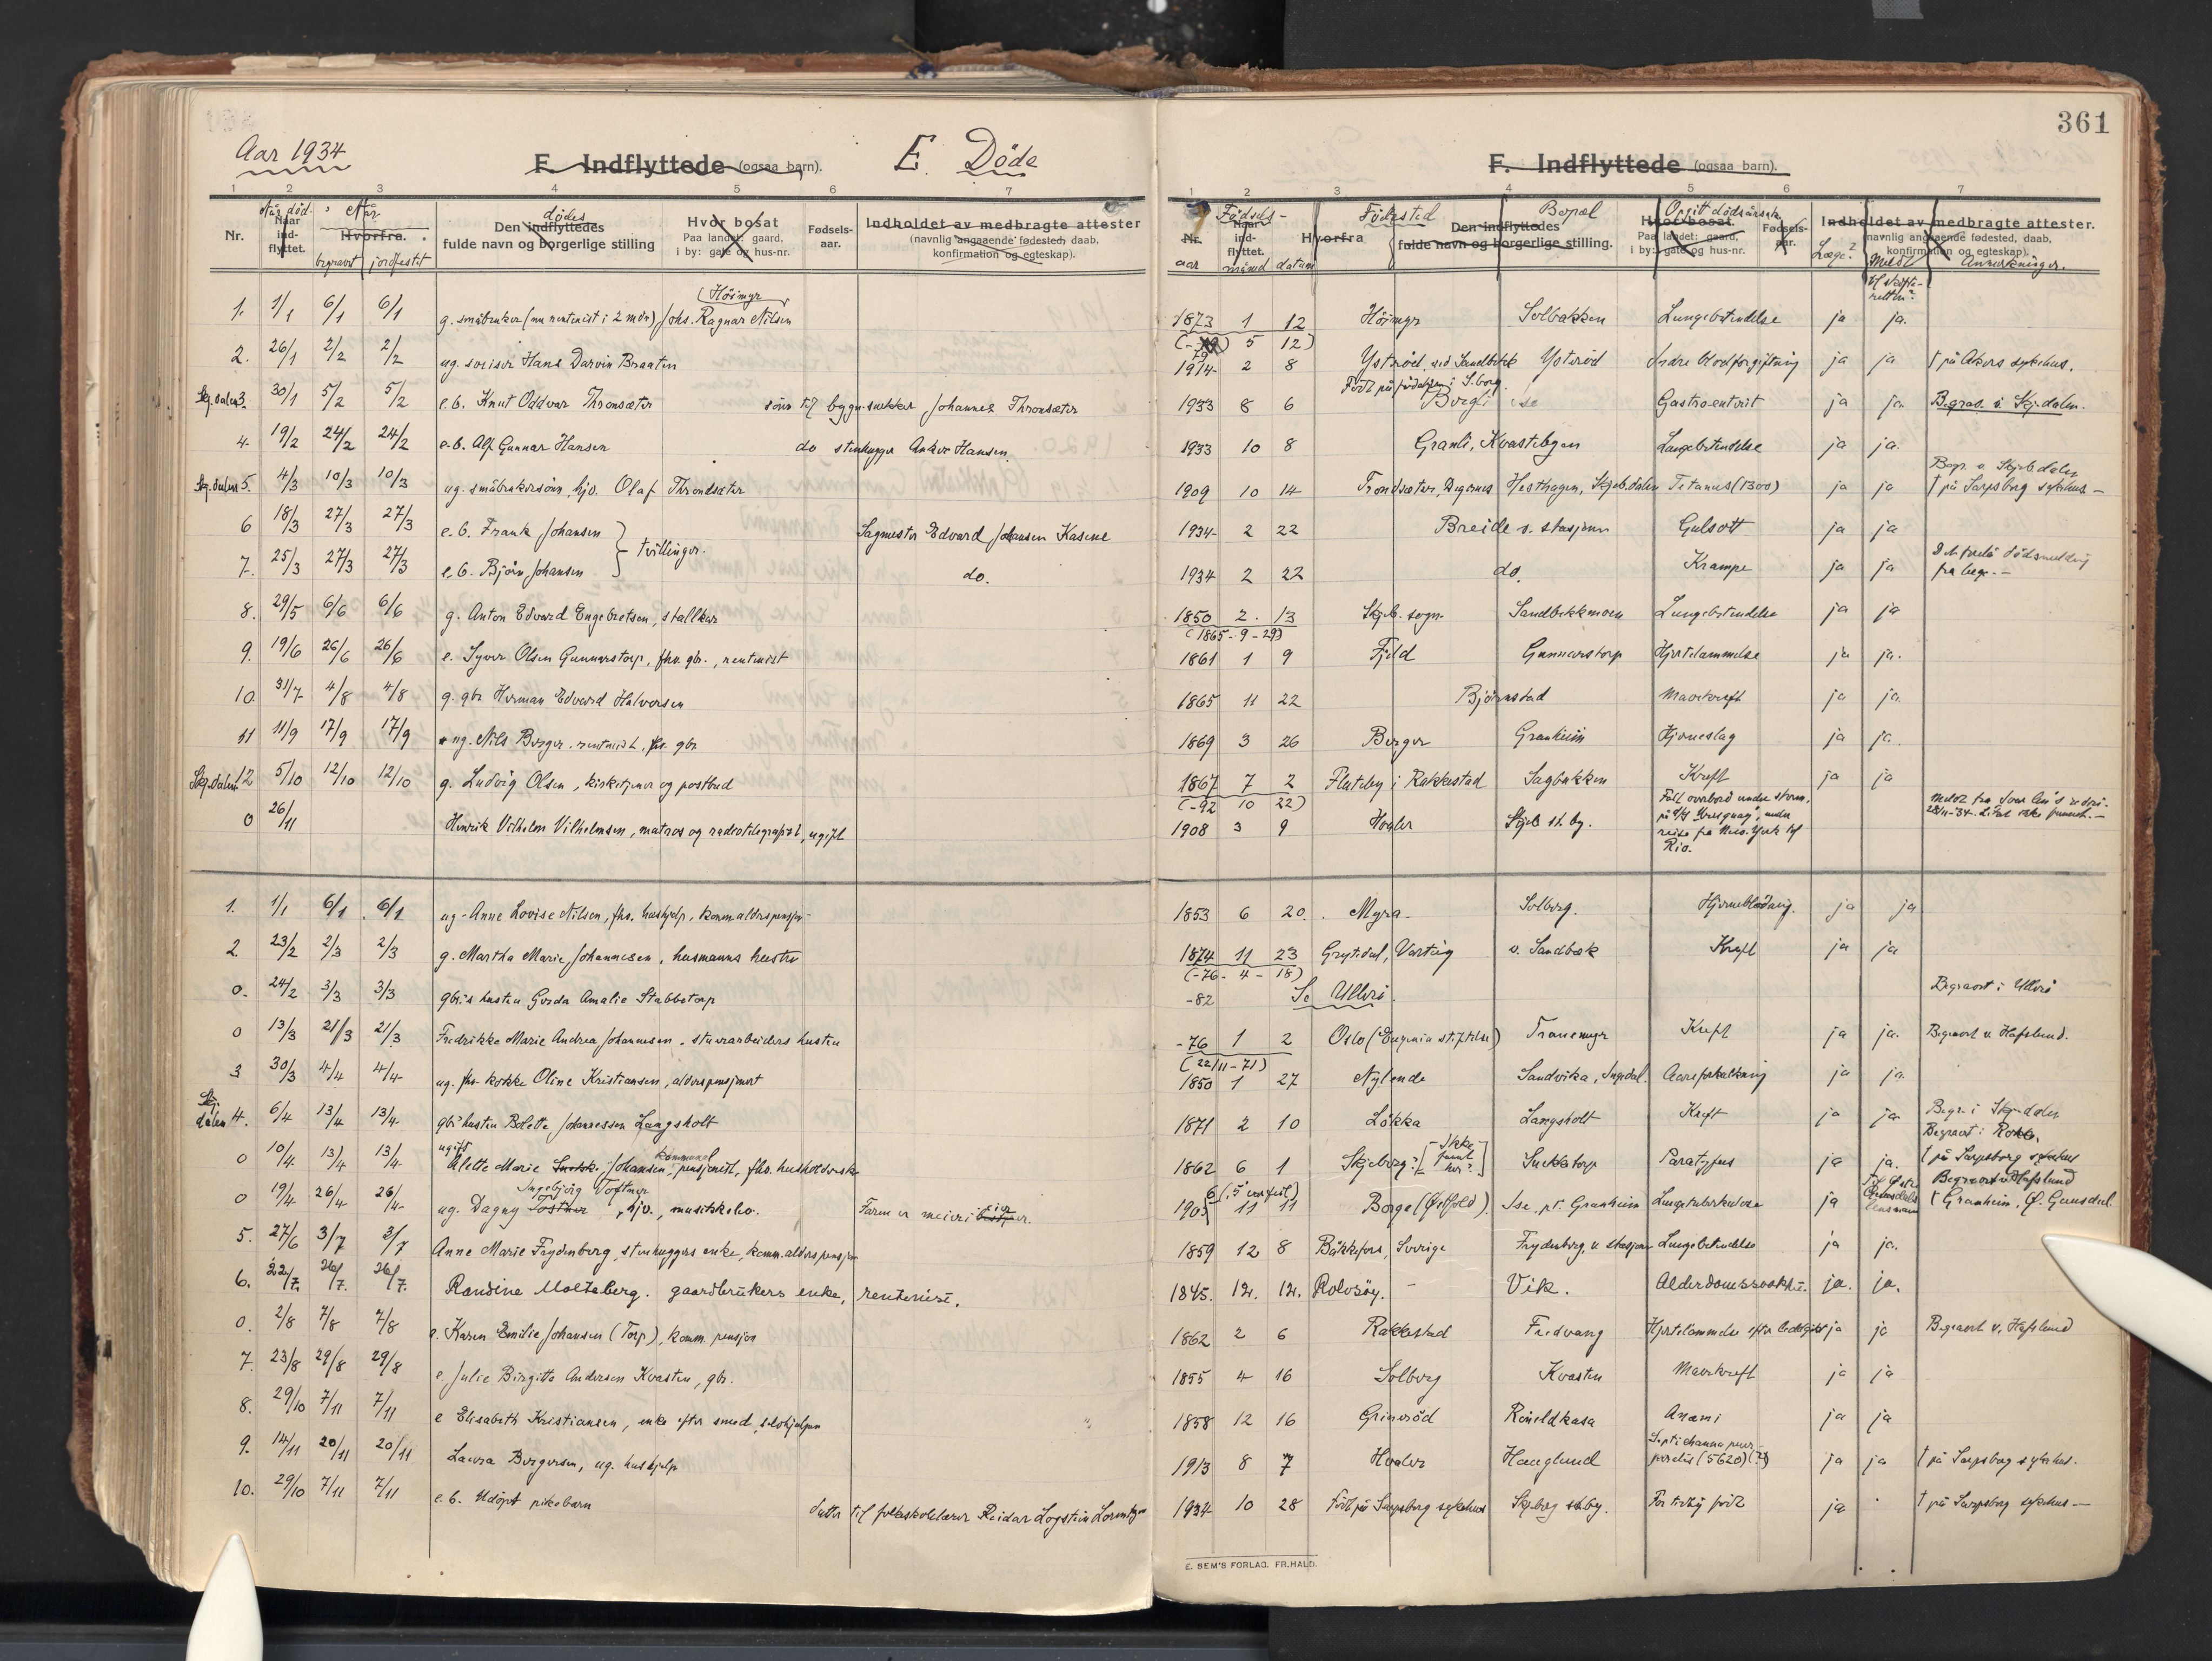 Aar 1934
F. Indflyttede (ogsaa barn).
E. Döde
1 2 3 4 5 6 7
Nr.
Når död.
Naar ind-flyttet.
Når
Hvorfra.
begravet jordfestet
dödes
Den indflyttedes
fulde navn og borgerlige stilling
Hvor bosat
Paa landet: gaard,
i by: gate og hus-nr.
Fødsels-
aar.
Indholdet av medbragte attester
(navnlig angaaende fødested, daab,
konfirmation og egteskap).
(Höimyr)
1. 1/1 6/1 6/1 g. småbruker (nu rentenist i 2 mdr) Johs. Ragnar Nilsen
2. 26/1 2/2 2/2 ug. Hans Darvin Braaten
Skj.dalen 3. 30/1 5/2 5/2 e.b. Knut Oddvar Thronsæter sönn til bygn.snekker Johannes Thronsæter
4. 19/2 24/2 24/2 e.b. Alf Gunnar Hansen do stenhugger Anker Hansen
Skj.dalen 5. 4/3 10/3 10/3 ug. småbrukersönn, hjv. Olaf Throndsæter
6 18/3 27/3 27/3 e.b. Frank Johansen } tvillinger. Sagmester Edvard Johansen Kasene
7. 25/3 27/3 27/3 e.b. Björn Johansen do.
8. 29/5 6/6 6/6 g. Anton Edvard Engebretsen, stallkar
9. 19/6 26/6 26/6 e. Syver Olsen Gunnarstorp, fhv. gbr., rentenist
10. 31/7 4/8 4/8 g. gbr Herman Edvard Halvorsen
11 11/9 17/9 17/9 ug. Nils Berger. rentenist, fhv. gbr
Skj.dalen 12 5/10 12/10 12/10 g. Ludvig Olsen, kirketjener og postbud
0 26/11 Henrik Vilhelm Vilhelmsen, matros og radiotelegrafist, ugift
1. 1/1 6/1 6/1 ug. Anne Lovise Nilsen, fhv. hushjelp, komm alderspensjon
2. 23/2 2/3 2/3 g. Martha Marie Johannesen, husmanns hustru
0. 24/2 3/3 3/3 gbr's hustru Gerda Amalie Stabbetorp
0 13/3 21/3 21/3 Fredrikke Marie Andrea Johannesen. stuerarbeiders hustru
3 30/3 4/4 4/4 ug. fhv kokke Oline Kristiansen, alderspensjonert
Skj.dalen 4. 6/4 13/4 13/4 gbr's hustru Bolette Johannessen Langsholt
0 10/4 13/4 13/4 ugift Alette Marie Johansen, kommunal pensjonist, fhv. husholderske
0 19/4 26/4 26/4 ug. Dagny Ingebjörg Toftner, hjv., musikkelev. Faren er meierieier.
5. 27/6 3/7 3/7 Anne Marie Frydenberg, stenhuggers enke, komm. alderspensjon
6. 22/7 26/7 26/7 Randine Molteberg. gaardbrukers enke, rentenist.
0. 2/8 7/8 7/8 e. Karen Emilie Johansen (Torp), komm. pensjon
7. 23/8 29/8 29/8 e. Julie Birgitte Andersen Kvasten, gbr.
8. 29/10 7/11 7/11 e Elisabeth Kristiansen, enke efter smed, selvhjulpen
9. 14/11 20/11 20/11 Laura Bergersen, ug. hushjelp
10. 29/10 7/11 7/11 e.b. Udöpt pikebarn datter til folkeskolelærer Reidar Logstein Lorentzen
361
F. Indflyttede (ogsaa barn).
1 2 3 4 5 6 7
Nr.
aar
Födsels-
Naar ind-flyttet.
måned datum
Hvorfra
Födested
Bopæl
Den indflyttedes
fulde navn og borgerlige stilling.
Opgitt dödsårsak
Hvor bosat.
Paa landet: gaard,
i by: gate og hus-nr.
Fødsels-
aar.
Indholdet av medbragte attester.
(navnlig angaaende fødested, daab,
konfirmation og egteskap).
Læge? Meldt til skifte-retten? Anmerkninger.
1873 1 12 Höimyr Solbakken Lungebetendelse ja ja.
(-79 5 12)
1914 2 8 Ysteröd, ved Sandbekk Ysteröd Indre blodforgiftning ja ja † på Akers sykehus.
Född på födehjem i S.borg.
1933 8 6 Borgli Ise Gastroenterit ja ja. Begrav. i Skj.dalen.
1933 10 8 Granli, Kvastebyen Lungebetendelse ja ja.
1909 10 14 Trondsæter, Degernes Hesthagen, Skjeb.dalen Tetanus (1300) ja ja Begr. i Skjeb.dalen † på Sarpsborg sykehus –
1934 2 22 Breide v. stasjonen Gulsott ja ja
1934 2 22 do. Krampe ja ja dödsmelding fra læge. –
1850 2 13 Skjeb. sogn Sandbekkmoen Lungebetendelse ja ja
(1865 - 9 - 29)
1861 1 9 Fjeld Gunnarstorp Hjertelammelse ja ja.
1865 11 22 Bjørnstad Mavekreft ja ja.
1869 3 26 Berger Granheim Hjerneslag ja ja.
1867 7 2 Flateby i Rakkestad Sagbakken Kreft ja ja
(-92 10 22)
1908 3 9 Hvaler Skjeb. st. by. Falt overbord under storm, på under reise fra New-York til Rio. Meldt fra 28/11-34. Liket ikke funnet. –
1853 6 20. Myra. Solberg. Hjerneblödning. ja ja
1874 11 23 Grytedal, Varteig v. Sandbæk Kreft ja ja
(-76 - 4 - 18)
-82 Se Ullerö. Begravet i Ullerö
-76 1 2 Oslo (Eugenia stiftelse) Tranemyr Kreft ja ja. Begravet v. Hafslund.
(22/11-71)
1850 1 27 Nylende Sandvika, Ingedal. Aareforkalkning ja ja.
1871 2 10 Lökka Langsholt Kreft ja ja. Begr. i Skj.dalen
1862 6 1 Skjeberg? [Ikke funnet her?] Suckketorp Paratyfus ja ja. Begravet i Rokke. † på Sarpsborg sykehus
1905 11 11 Borge (Østfold). Ise. pt. Granheim Lungetuberkulose ja Begravet v. Hafslund † Granheim, Ø. Gausdal.
1859 12 8 Bäkkefors, Sverige Frydenberg, v. stasjonen Lungebetendelse ja ja.
1845. 12. 12. Rolvsöy. – Vik. Alderdomssvakhet. ja. ja.
1862 2 6 Rakkestad Fredvang Hjertelammelse efter leddgikt ja ja Begravet v. Hafslund
1855 4 16 Solberg Kvasten Mavekreft ja ja
1858 12 16 Grimsöd Röneldkasa Anæmi ja ja
1913 8 7 Hvaler Hauglund (5620) (?) ja ja † på Sarpsborg sykehus.
1934 10 28 Född på Sarpsborg sykehus Skjeberg st.by. For tidlig född ja † på Sarpsborg sykehus –
E. SEM'S FORLAG. FR.HALD.